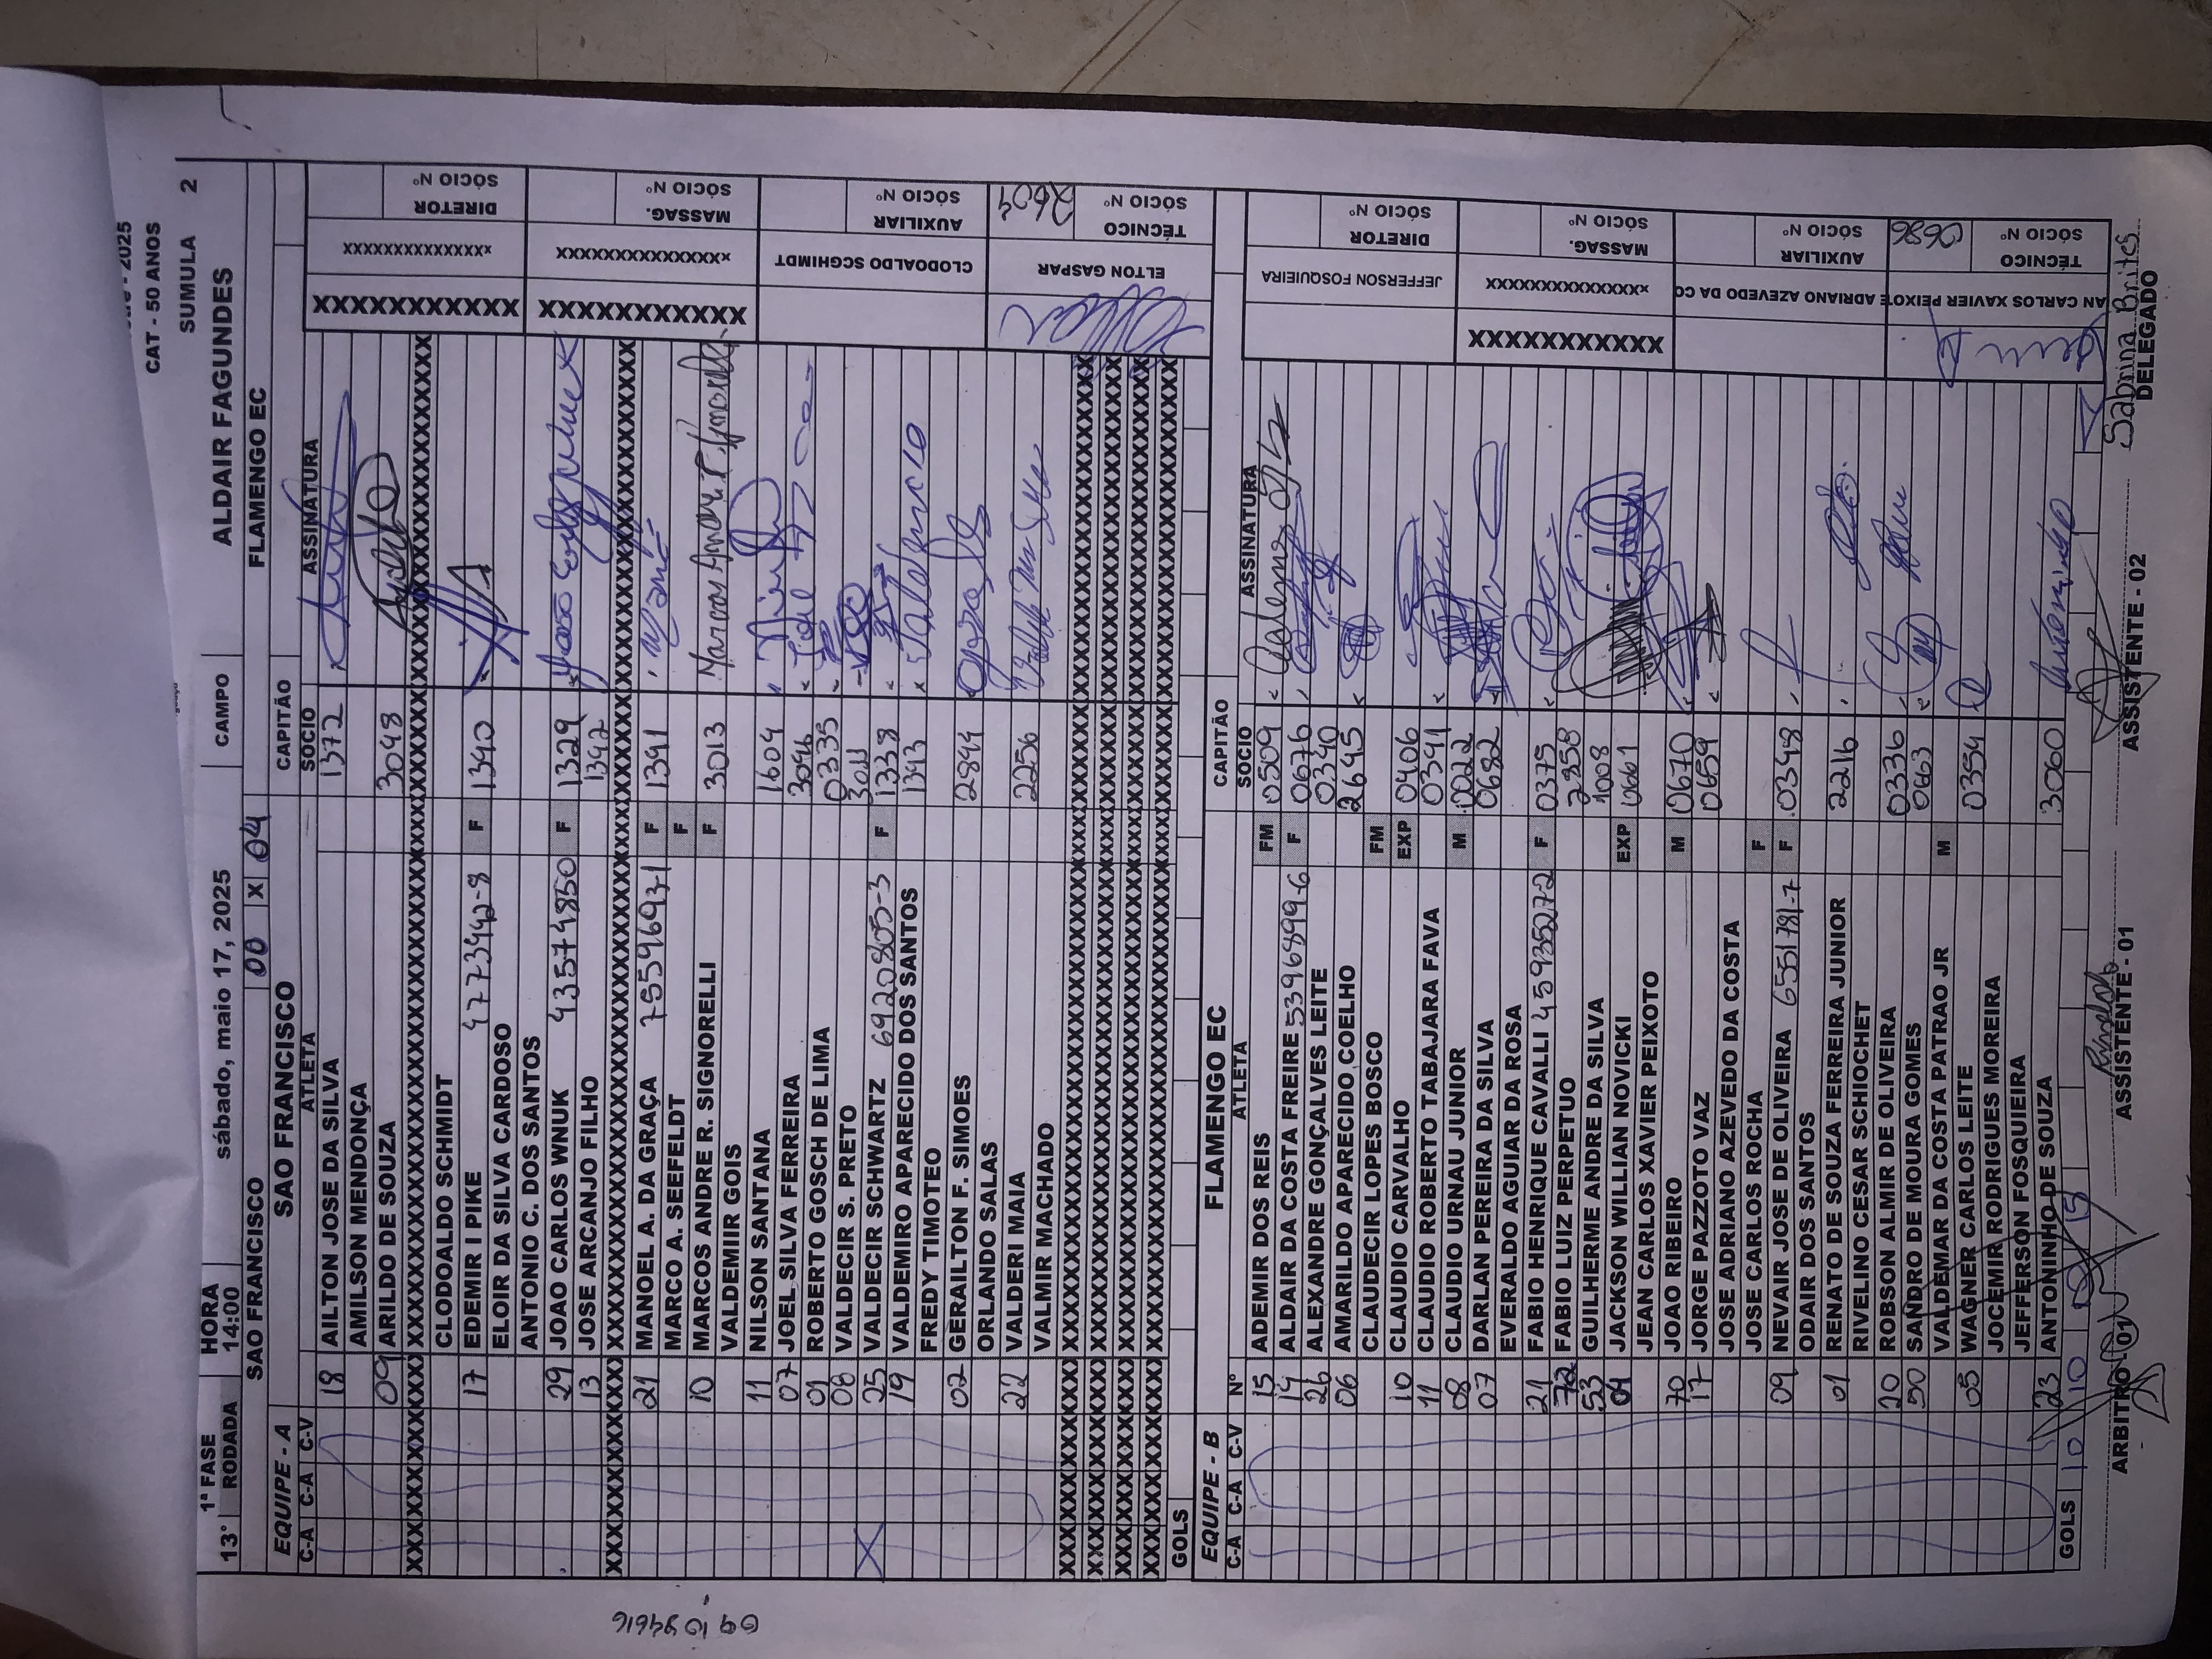 CAT - 50 ANOS
SUMULA 2
1ª FASE HORA sábado, maio 17, 2025 CAMPO ALDAIR FAGUNDES
13° RODADA 14:00
SAO FRANCISCO 00 X 04 FLAMENGO EC
EQUIPE - A SAO FRANCISCO CAPITÃO
C-A C-A C-V ATLETA SOCIO ASSINATURA
18 AILTON JOSE DA SILVA 1372
AMILSON MENDONÇA
09 ARILDO DE SOUZA 3048
XXXXXXXXXXXXXXXXXXXXXXXXXXXXXXXXXXXXXXXX
CLODOALDO SCHMIDT
17 EDEMIR I PIKE 4773442-8 F 1340
ELOIR DA SILVA CARDOSO
ANTONIO C. DOS SANTOS
29 JOAO CARLOS WNUK 43574850 F 1329
13 JOSE ARCANJO FILHO 1342
XXXXXXXXXXXXXXXXXXXXXXXXXXXXXXXXXXXXXXXX
21 MANOEL A. DA GRAÇA 75596931 F 1341
MARCO A. SEEFELDT F
10 MARCOS ANDRE R. SIGNORELLI F 3013
VALDEMIIR GOIS
11 NILSON SANTANA 1604
07 JOEL SILVA FERREIRA 3046
01 ROBERTO GOSCH DE LIMA 0335
08 VALDECIR S. PRETO 3011
25 VALDECIR SCHWARTZ 6920805-3 F 1338
19 VALDEMIRO APARECIDO DOS SANTOS 1343
FREDY TIMOTEO
02 GERAILTON F. SIMOES 2844
ORLANDO SALAS
22 VALDERI MAIA 2256
VALMIR MACHADO
XXXXXXXXXXXXXXXXXXXXXXXXXXXXXXXXXXXXXXXX
XXXXXXXXXXXXXXXXXXXXXXXXXXXXXXXXXXXXXXXX
XXXXXXXXXXXXXXXXXXXXXXXXXXXXXXXXXXXXXXXX
XXXXXXXXXXXXXXXXXXXXXXXXXXXXXXXXXXXXXXXX
GOLS
XXXXXXXXXXX XXXXXXXXXXXXXXX DIRETOR SÓCIO Nº
XXXXXXXXXXX XXXXXXXXXXXXXXX MASSAG. SÓCIO Nº
CLODOALDO SCGHIMDT AUXILIAR SÓCIO Nº
ELTON GASPAR TÉCNICO SÓCIO Nº 2604
EQUIPE - B FLAMENGO EC CAPITÃO
C-A C-A C-V Nº ATLETA SOCIO ASSINATURA
15 ADEMIR DOS REIS FM 0509
14 ALDAIR DA COSTA FREIRE 5396899-6 F 0676
26 ALEXANDRE GONÇALVES LEITE 0340
06 AMARILDO APARECIDO COELHO 2645
CLAUDECIR LOPES BOSCO FM
10 CLAUDIO CARVALHO EXP 0406
11 CLAUDIO ROBERTO TABAJARA FAVA 0341
08 CLAUDIO URNAU JUNIOR M 0022
07 DARLAN PEREIRA DA SILVA 0682
EVERALDO AGUIAR DA ROSA
21 FABIO HENRIQUE CAVALLI 45935272 F 0375
72 FABIO LUIZ PERPETUO 2858
53 GUILHERME ANDRE DA SILVA 1008
04 JACKSON WILLIAN NOVICKI EXP 0661
JEAN CARLOS XAVIER PEIXOTO
70 JOAO RIBEIRO M 0670
17 JORGE PAZZOTO VAZ 0659
JOSE ADRIANO AZEVEDO DA COSTA
JOSE CARLOS ROCHA F
09 NEVAIR JOSE DE OLIVEIRA 6551781-7 F 0348
ODAIR DOS SANTOS
01 RENATO DE SOUZA FERREIRA JUNIOR 2216
RIVELINO CESAR SCHIOCHET
20 ROBSON ALMIR DE OLIVEIRA 0336
50 SANDRO DE MOURA GOMES 0663
VALDEMAR DA COSTA PATRAO JR M
05 WAGNER CARLOS LEITE 0354
JOCEMIR RODRIGUES MOREIRA
JEFFERSON FOSQUIERA
23 ANTONINHO DE SOUZA 3060
GOLS 10 10 15
JEFFERSON FOSQUIERA DIRETOR SÓCIO Nº
XXXXXXXXXXX XXXXXXXXXXXXXXX MASSAG. SÓCIO Nº
E ADRIANO AZEVEDO DA CO AUXILIAR SÓCIO Nº
AN CARLOS XAVIER PEIXOT TÉCNICO SÓCIO Nº 0686
Sabrina Brites
ARBITRO - 01 ASSISTENTE - 01 ASSISTENTE - 02 DELEGADO